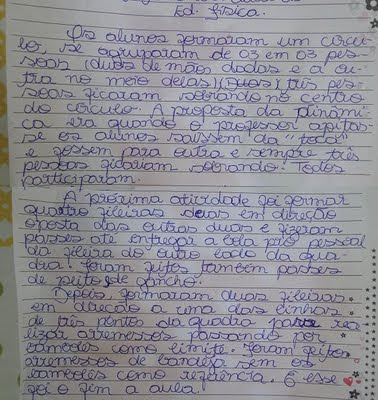 Ed. Física.
Os alunos formaram um círcu
lo, se agruparam de 03 em 03 pes
soas (duas de mãos dadas e a ou
tra no meio delas) (duas) três pes
soas ficaram sobrando no centro
do círculo. A proposta da dinâmi
ca era quando o professor apitas
se os alunos saíssem da "toca"
e fossem para outra e sempre três
pessoas ficariam sobrando. Todos
participaram.
A próxima atividade foi formar
quatro fileiras duas em direção
oposta das outras duas e fizeram
passes até entregar a bola pro pessoal
da fileira do outro lado da qua-
dra. Foram feitos também passes
de peito e de gancho.
Depois formaram duas fileiras
em direção a uma das linhas
de três pontos da quadra para rea
lizar arremessos passando por
também como limite. Foram feitos
arremessos de bandeja sem os
como referência. E esse
foi o fim a aula.